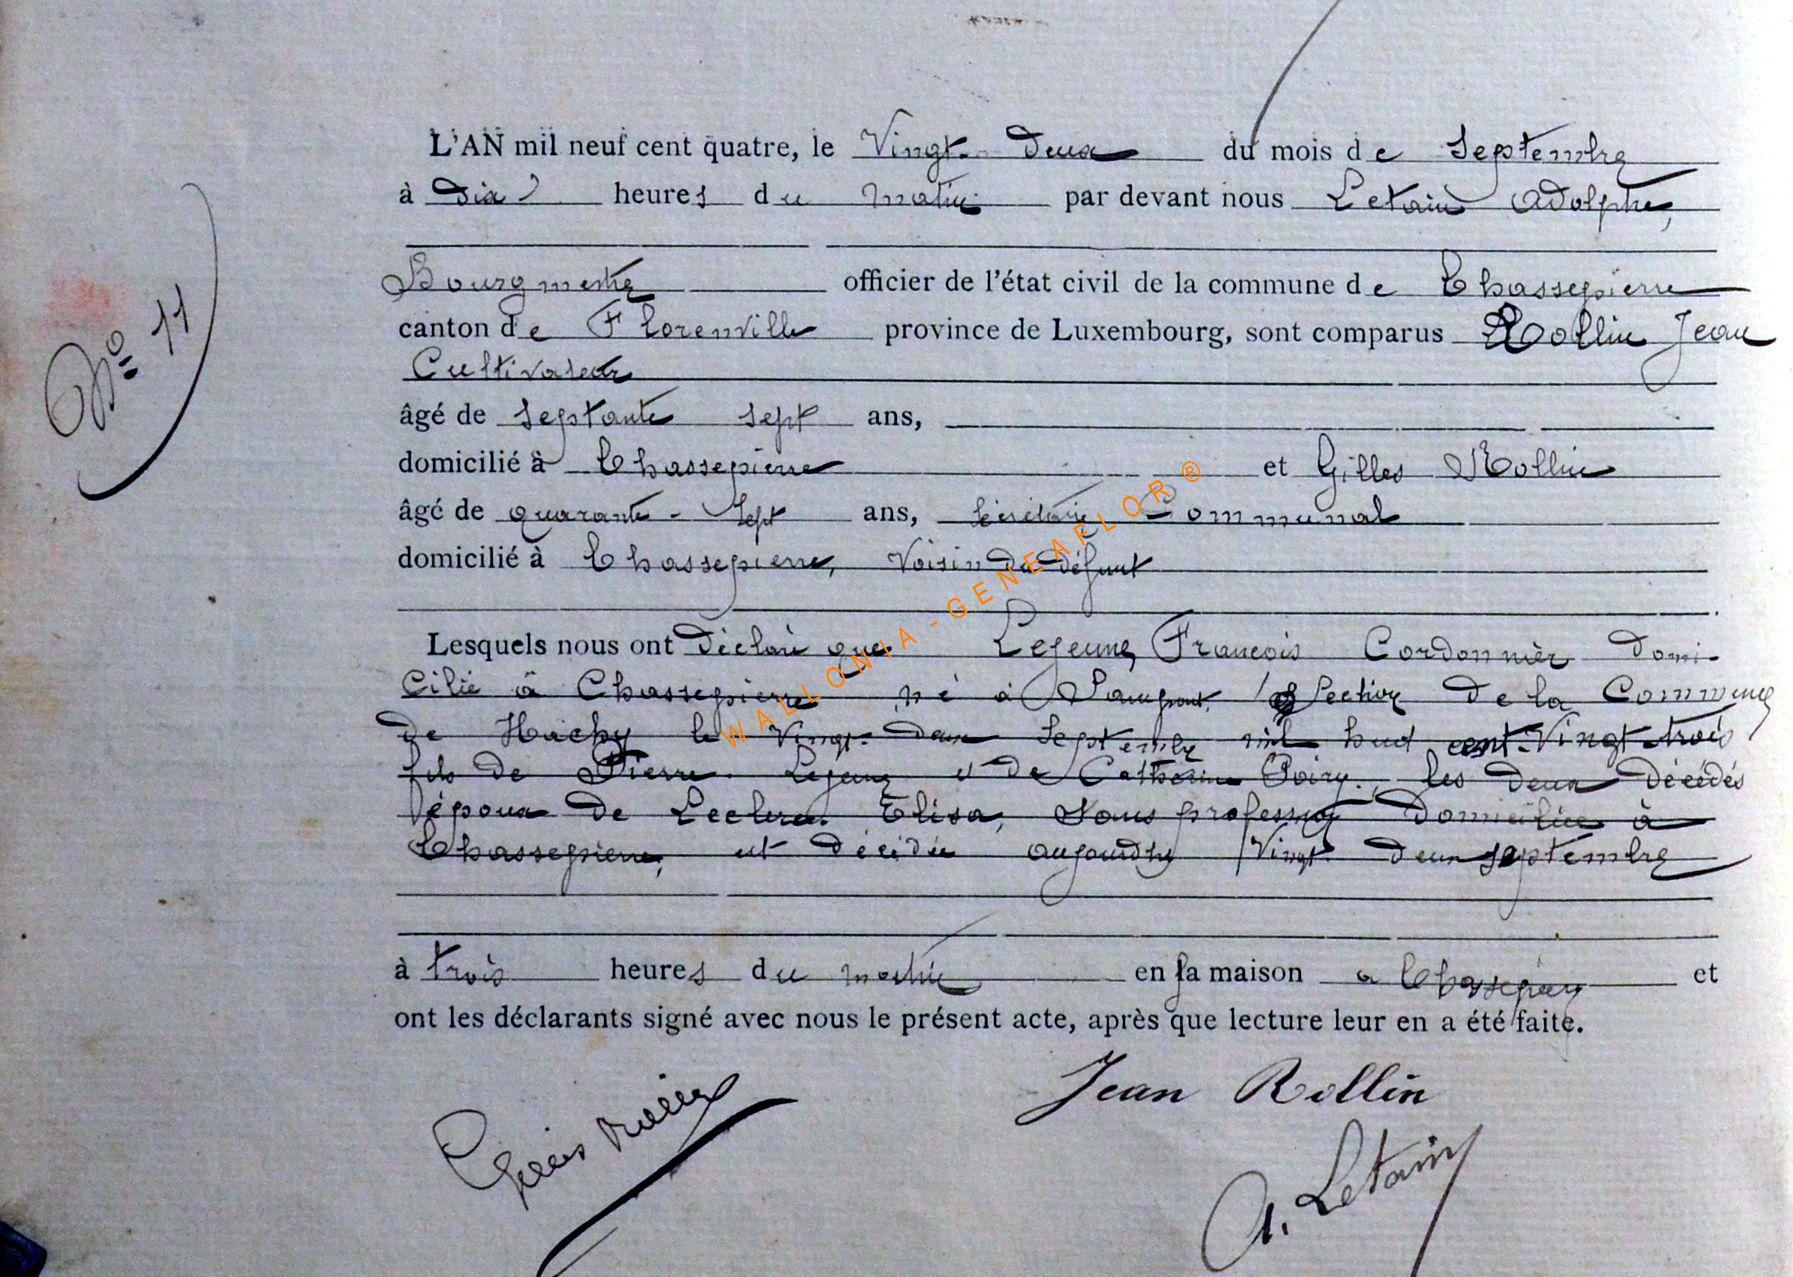 N° 11
L'AN mil neuf cent quatre, le Vingt-deux du mois de Septembre
à dix heures du matin par devant nous Letain Adolphe,
Bourgmestre officier de l'état civil de la commune de Chassepierre
canton de Florenville province de Luxembourg, sont comparus Rollin Jean
Cultivateur
âgé de septante sept ans,
domicilié à Chassepierre et Gilles Rollin
âgé de quarante-sept ans, secrétaire Communal
domicilié à Chassepierre, Voisin du défunt
Lesquels nous ont déclaré que Lejeune, Francois Cordonnier domi-
cilié à Chassepierre né à Sampont, Section de la Commune
de Hachy le Vingt-deux Septembre mil huit cent-Vingt-trois
fils de Pierre Lejeune et de Catherine Poiry, les deux décédés
époux de Leclerc Elisa, Sans profession domiciliée à
Chassepierre, est décédé aujourdhy Vingt-deux septembre
à trois heures du matin en sa maison a Chassepierre et
ont les déclarants signé avec nous le présent acte, après que lecture leur en a été faite.
Jean Rollin
Gilles Rollin
A. Letain
WALLONIA - GENEAFLOR ®